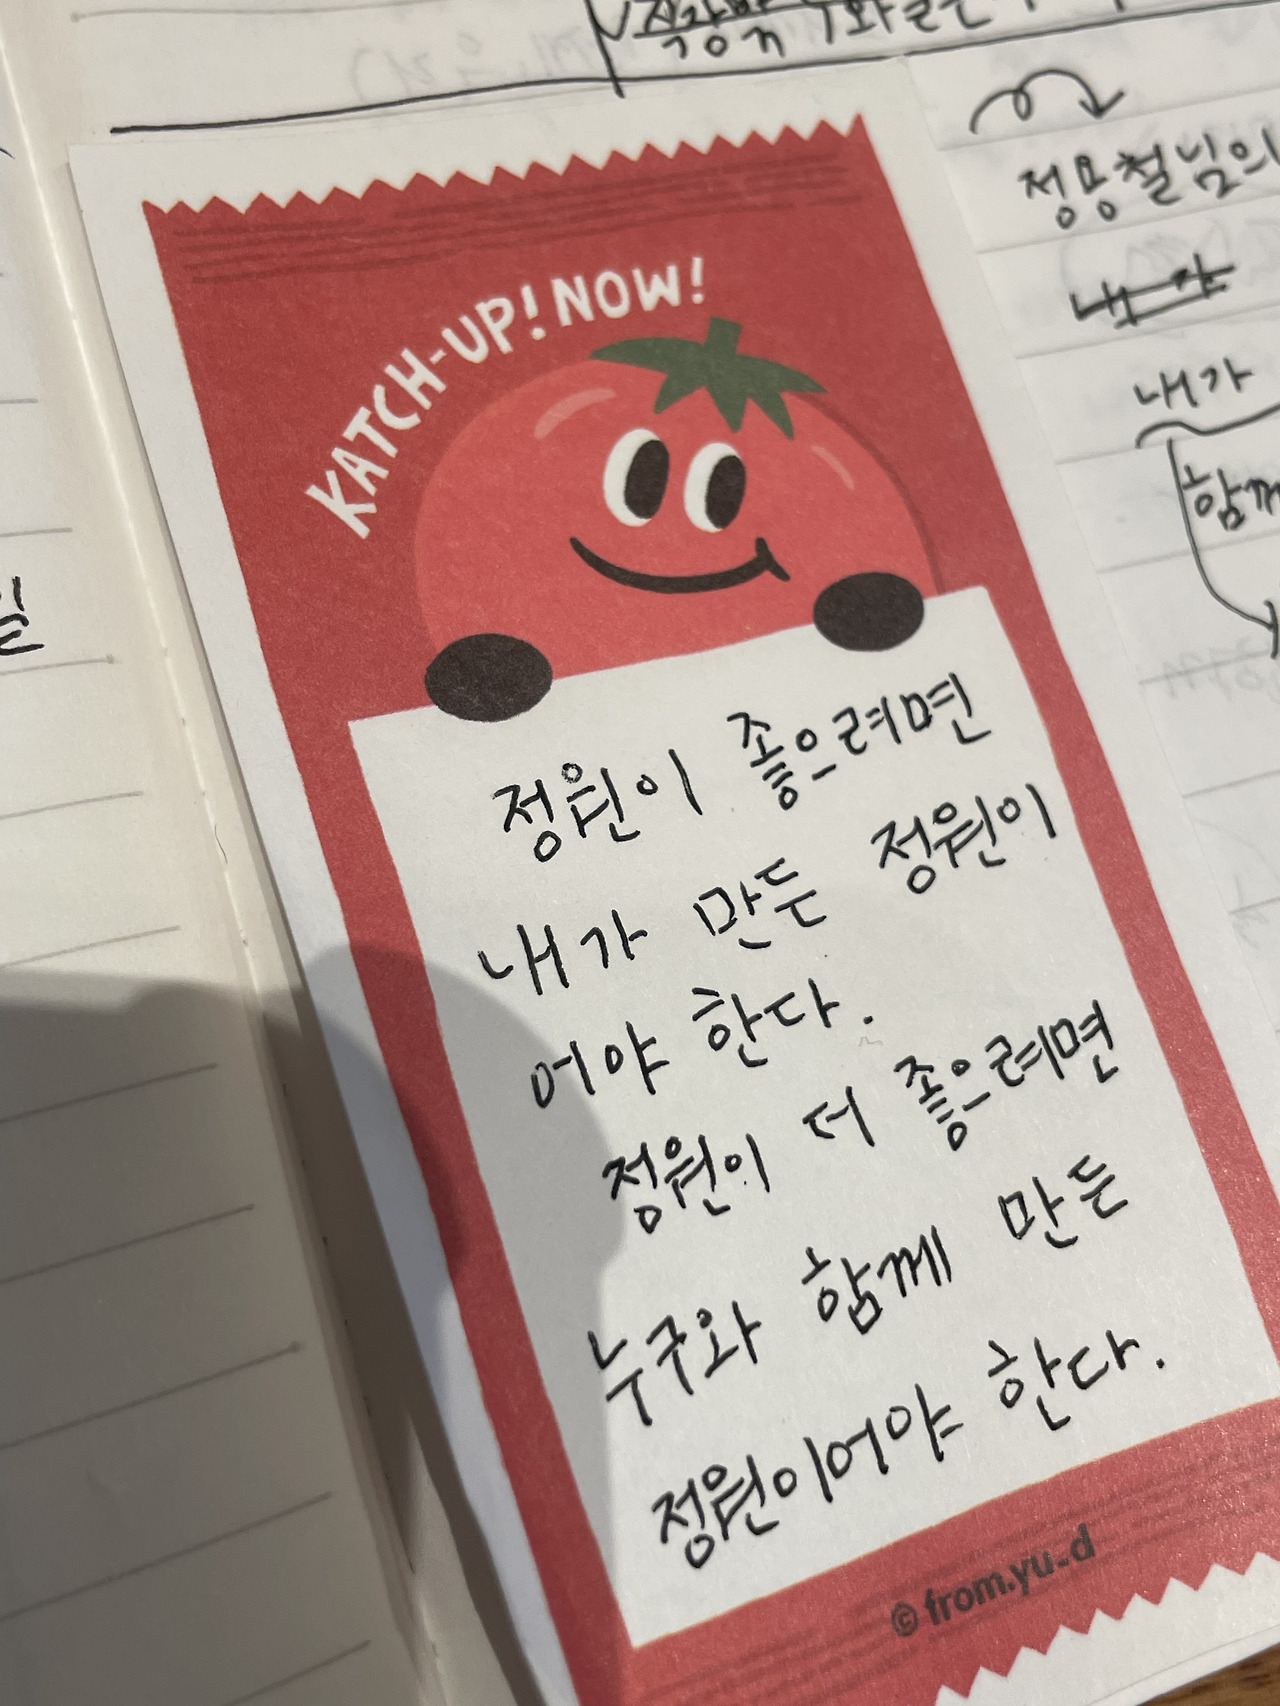 정용철님의
내가
함께
일
KATCH-UP! NOW!
정원이 좋으려면
내가 만든 정원이
어야 한다.
정원이 더 좋으려면
누구와 함께 만든
정원이어야 한다.
© from.yu_d